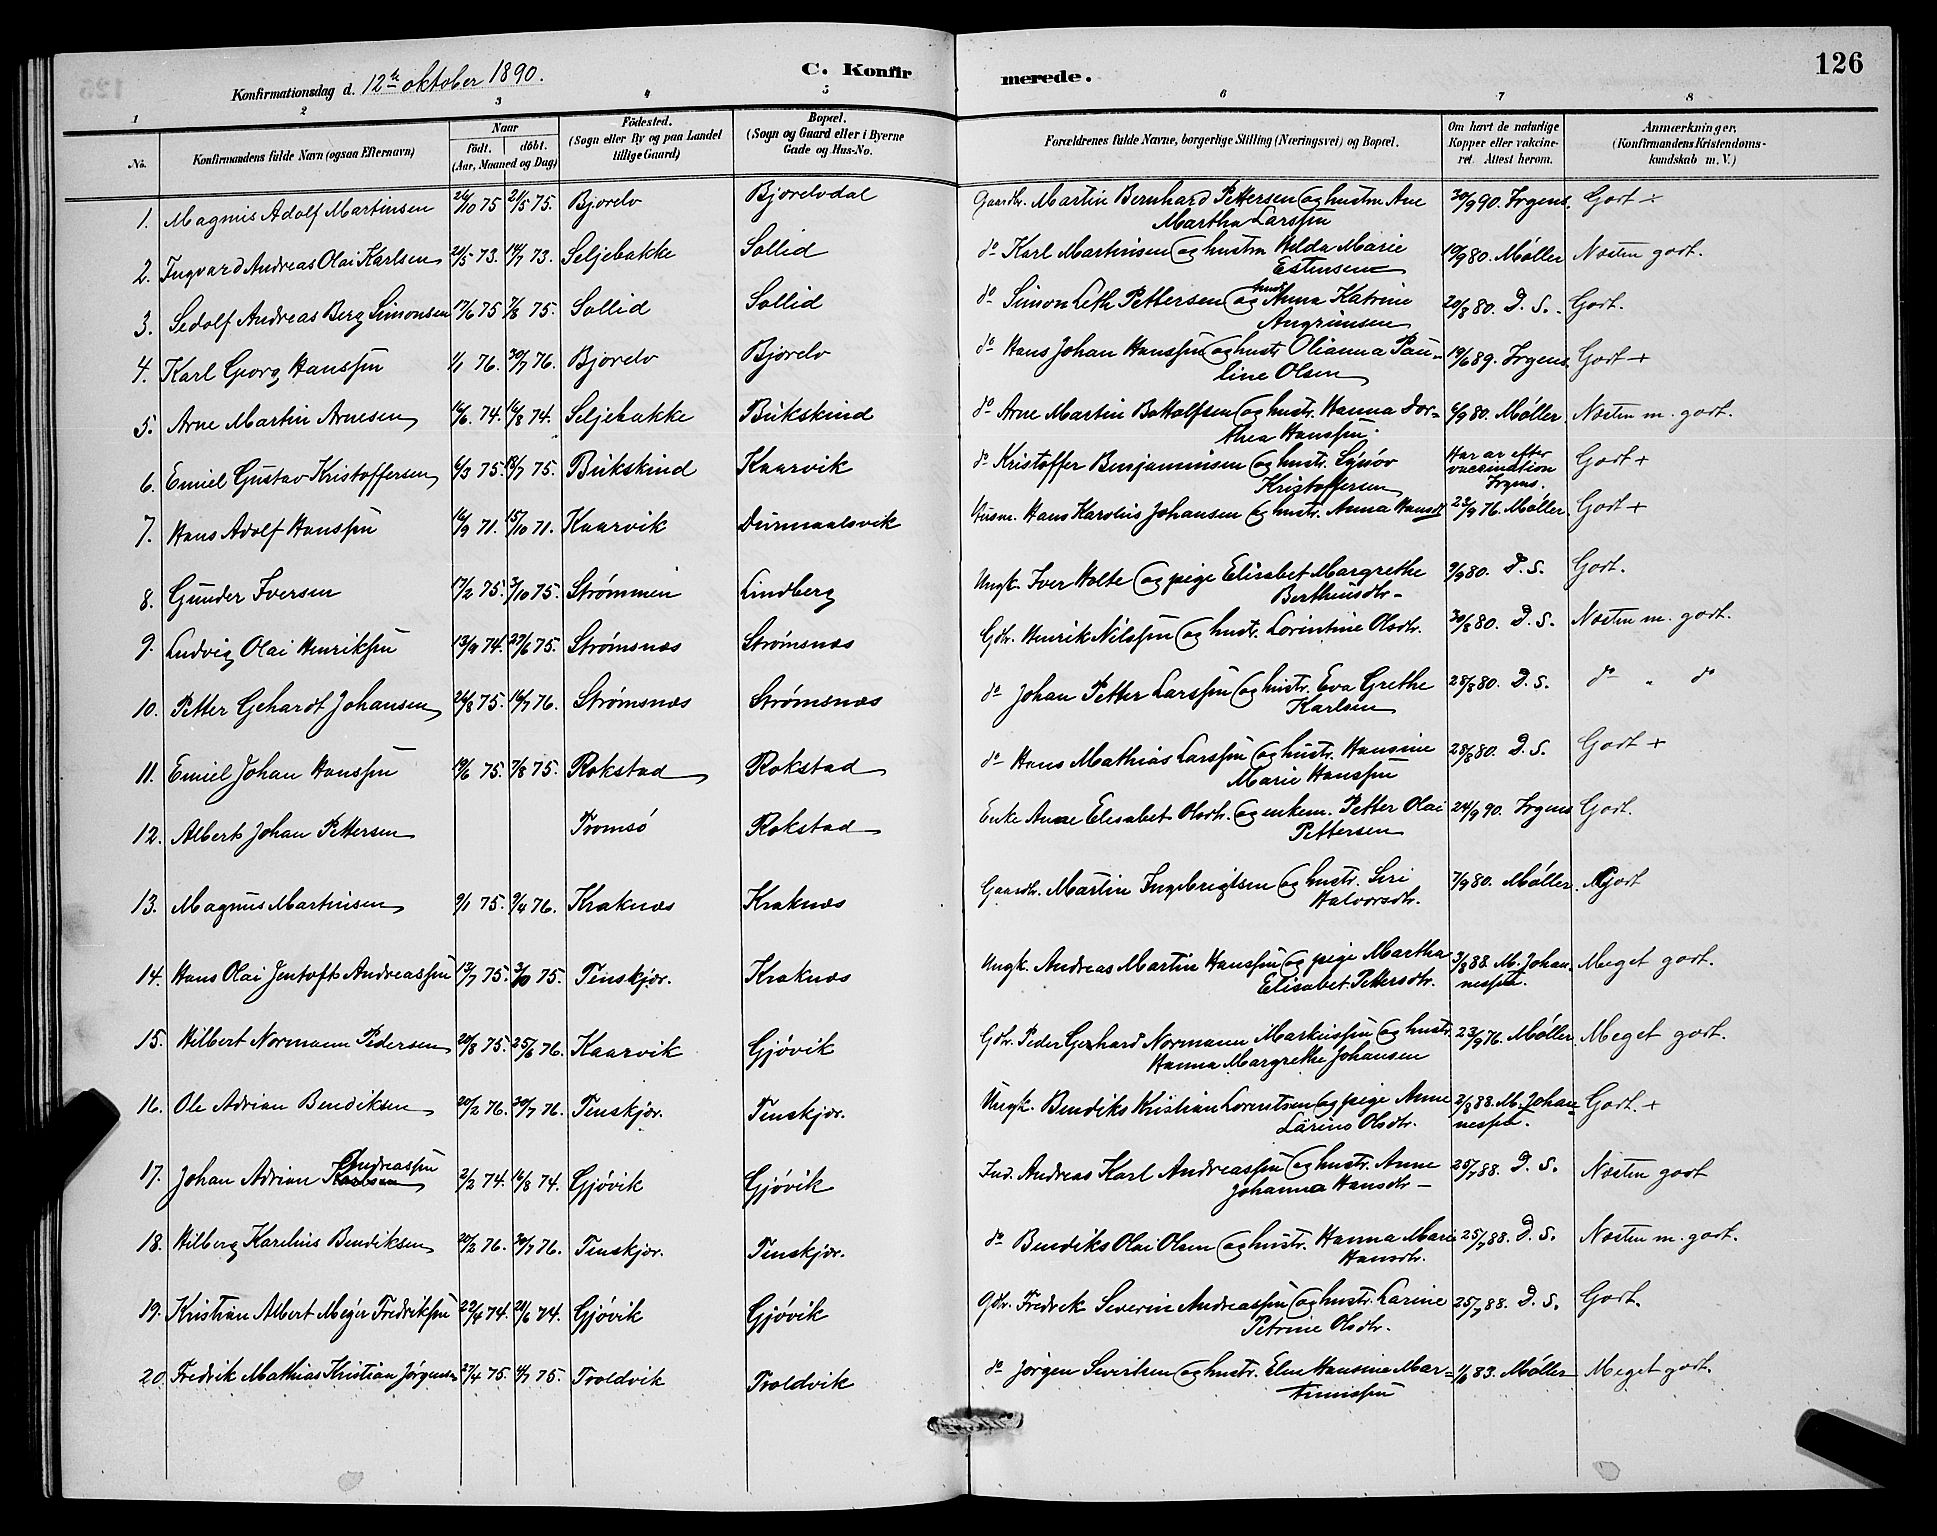 126
Konfirmationsdag d. 12te oktober 1890. C. Konfirmerede.
1 2 3 4 5 6 7 8
No. Konfirmandens fulde Navn (ogsaa Efternavn) Naar födt. döbt. (Aar, Maaned og Dag) Födested. (Sogn eller By og paa Landet tillige Gaard) Bopæl. (Sogn og Gaard eller i Byerne Gade og Hus-No. Forældrenes fulde Navne, borgerlige Stilling (Næringsvei) og Bopæl. Om havt de naturlige Kopper eller vakcineret. Attest herom. Anmærkninger. (Konfirmandens Kristendomskundskab m. V.)
1. Magnus Adolf Martinsen 26/10 75 21/5 75. Bjorelv Bjorelvdal Gaardbr. Martin Bernhard Pettersen og hustru Ane 30/9 90. Irgens. Godt +
Martha Larssen
2. Ingvard Andreas Olai Karlsen 21/5 73. 14/7 73. Seljebakke Sollid do Karl Martinisen og hustru Hilda Marie 10/9 80. Møller Næsten godt.
Estensen
3. Sedolf Andreas Berg Simonsen 17/6 75 7/8 75. Sollid Sollid do Simon Leth Pettersen og hust. Anna Katrine 20/8 80. D. S. Godt.
Angrimsen
4. Karl Georg Hanssen 1/1 76. 30/7 76. Bjorelv Bjorelv do Hans Johan Hanssen og hustr. Olianna Pau- 19/6 89. Irgens Godt +
line Olsen
5. Arne Martin Arnesen 16/6. 74. 16/8 74. Seljebakke Bukskind do Arne Martin Bottolfsen og hustr. Hanna Dor- 6/9 80. Møller Næsten m. godt.
thea Hanssen.
6. Emiel Gustav Kristoffersen 6/3 75. 18/7 75. Bukskind Kaarvik do Kristoffer Benjaminsen og hustr. Synøv Har ar efter vaccination Irgens. Godt +
Kristoffersen
7. Hans Adolf Hanssen 16/9 71. 15/10 71. Kaarvik Durmaalsvik Husm. Hans Karolius Johansen og hustr. Anna Hansd 23/9 76. Møller Godt +
8. Gunder Iversen 17/2 75. 3/10 75. Strømmen Lindberg Ungk. Iver Holte og pige Elisabet Margrethe 9/9 80. D. S. Godt.
Berthinsdtr-
9. Ludvig Olai Henriksen 13/9 74. 27/6 75. Strømsnæs Strømsnæs Gdbr. Henrik Nilssen og hustr. Lorintine Olsdtr. 30/8 80. D. S. Næsten m. godt.
10. Petter Gehardt Johansen 26/8 75. 16/7 76. Strømsnæs Strømsnæs do Johan Petter Larssen og hustr. Eva Grethe 28/8 80. D. S. do " do
Karlsen
11. Emiel Johan Hanssen 19/6 75. 7/8 75. Rokstad Rokstad do Hans Mathias Larssen og hustr. Hansine 28/8 80. D. S. Godt +
Marie Hanssen
12. Albert Johan Pettersen Tromsö Rokstad Enke Anne Elesabet Olsdtr. og enkem. Petter Olai 24/9 90. Irgens Godt.
Pettersen
13. Magnus Martinisen 9/1 75. 9/4 76. Kraknæs Kraknæs Gaardbr. Martin Ingebrigtsen og hustr. Siri 7/9 80. Møller. Godt
Halvorsdtr.
14. Hans Olai Jentoft Andreassen 13/7 75. 3/10 75. Tenskjær. Kraknæs Ungk. Andreas Martin Hanssen og pige Martha 3/8 88 M. Johan- Meget godt.
Elisabet Pettersdtr. nessen.
15. Hilbert Normann Pedersen 20/8 75. 25/6 76. Kaarvik Gjøvik Gdbr. Peder Gerhard Normann Markussen og hustr. 23/9 76. Møller Meget godt.
Hanna Margrethe Johansen
16. Ole Adrian Bendiksen 20/2 76. 30/7 76. Tenskjær. Tenskjær. Ungk. Bendiks Kristian Lorentsen og pige Anne 2/8 88. M. Johan- Godt. +
Larine Olsdtr. nessen.
17. Johan Adrian Karlsen Andreassen 2/2 74. 16/8 74. Gjøvik Gjøvik Ind. Andreas Karl Andreassen og hustr. Anne 25/7 88. D. S. Næsten godt
Johanna Hansdtr-
18. Hilberg Karelius Bendiksen 20/2 76. 30/7 76. Tenskjær. Tenskjær. do Bendiks Olai Olsen og hustr. Hanna Marie 25/7 88. D. S. Næsten m. godt.
Hansdtr.
19. Kristian Albert Mejer Fredriksen 22/4 74. 21/6 74. Gjøvik Gjøvik Gdbr. Fredrik Severin Andreassen og hustr. Larine 25/7 88. D. S. Godt.
Petrine Olsdtr.
20. Fredrik Mathias Kristian Jørgensen 27/4 75. 4/7 75. Troldvik Troldvik do Jørgen Sivertsen og hustr. Elen Hansine Mar- 1/6 83. Møller Meget godt.
tinussen